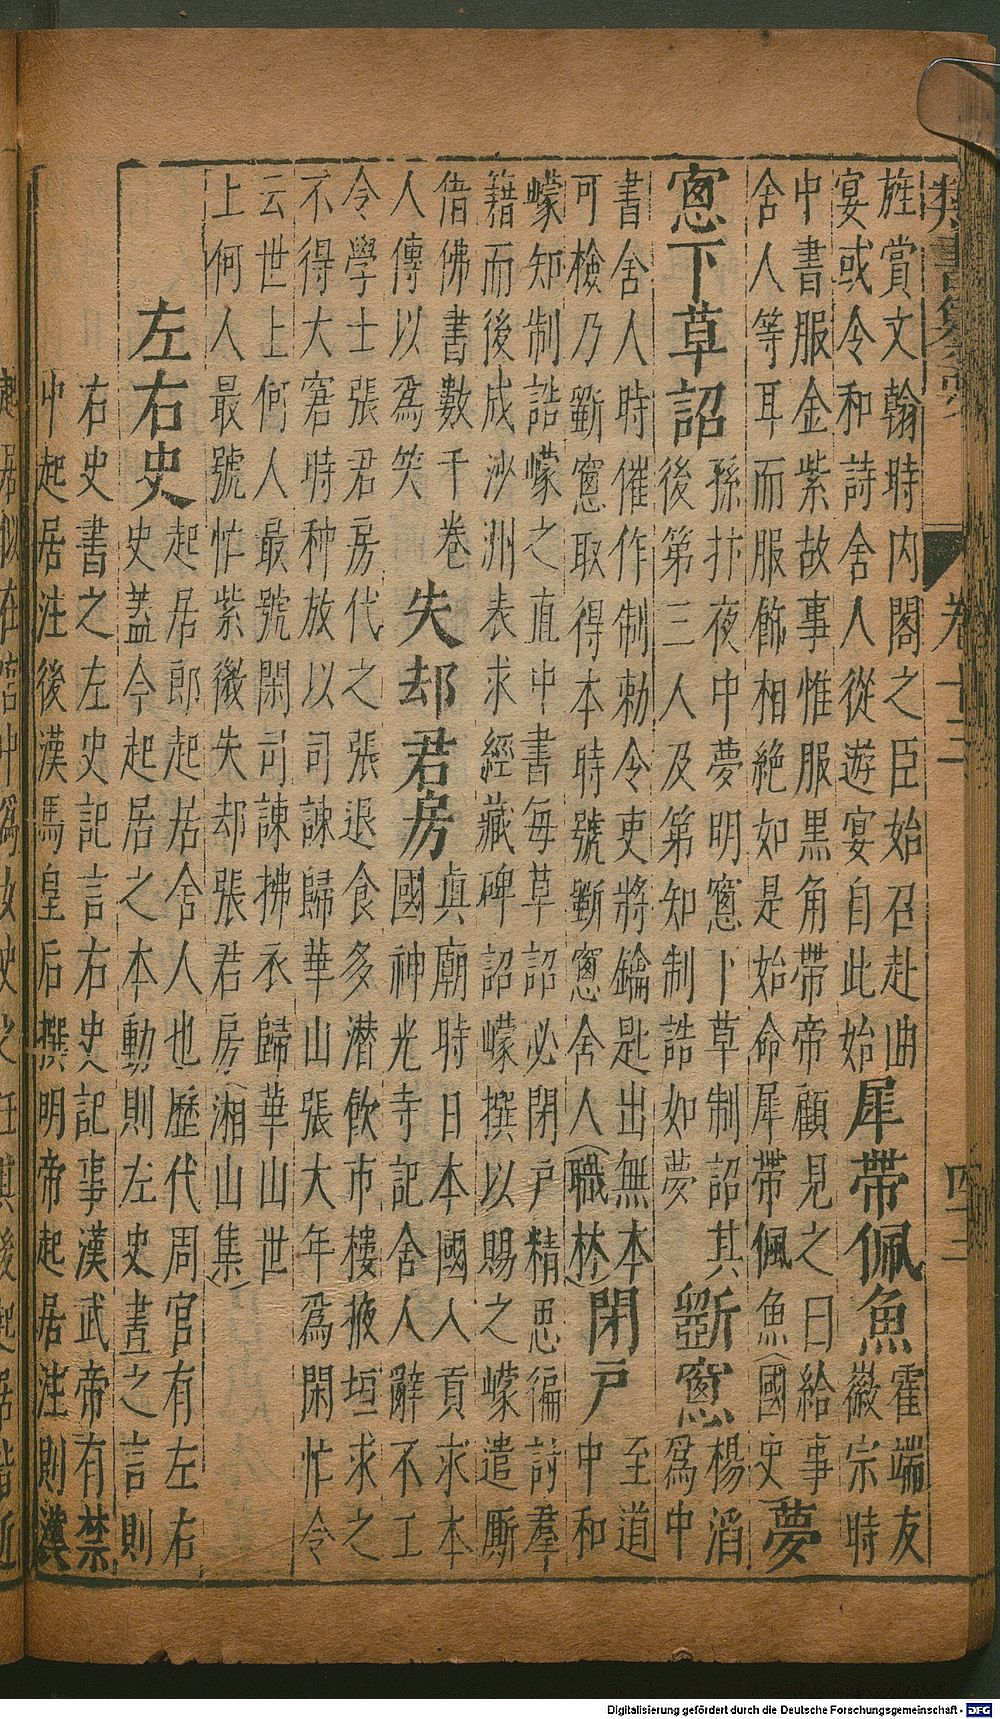 類書纂要 卷十二
旌賞文翰時内閣之臣始召赴曲
宴或令和詩舍人從遊宴自此始
犀帶佩魚
霍端友
徽宗時
中書服金紫故事惟服黒角帶帝顧見之曰給事
舍人等耳而服飾相絶如是始命犀帶佩魚(國史
夢
窓下草詔
孫抃夜中夢明窓下草制詔其
後第三人及第知制誥如夢
斵窓
楊滔
爲中
書舍人時催作制勅令吏將鑰匙出無本
可檢乃斵窓取得本時號斵窓舍人(職林)
閉戸
至道
中和
㠓知制誥㠓之直中書每草詔必閉戸精思徧討羣
籍而後成沙洲表求經藏碑詔㠓撰以賜之㠓遣厮
借佛書數千卷
人傳以爲笑
失却君房
眞廟時日本國人貢求本
國神光寺記舍人辭不工
令學士張君房代之張退食多潜飲市樓掖垣求之
不得大窘時种放以司諫歸華山張大年爲閑忙令
云世上何人最號閑司諫拂衣歸華山世
上何人最號忙紫微失却張君房(湘山集)
左右史
起居郎起居舍人也歷代周官有左右
史蓋今起居之本動則左史書之言則
右史書之左史記言右史記事漢武帝有禁
中起居注後漢馬皇后撰明帝起居注則漢
Digitalisierung gefördert durch die Deutsche Forschungsgemeinschaft - DFG